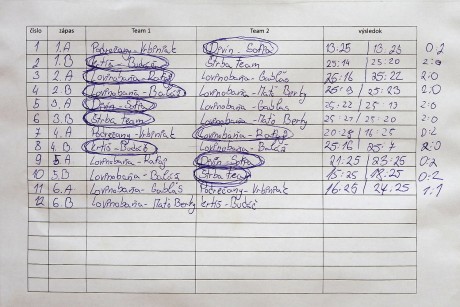 číslo zápas Team 1 Team 2 výsledok
1 1.A Počrečany - Vrbiniak Devín - Sofia 13:25 13:25 0:2
2 1.B Krtiš - Bučáč Štrba team 25:14 25:20 2:0
3 2.A Lovinobaňa - Rátaj Lovinobaňa - Gabláš 25:16 25:22 2:0
4 2.B Lovinobaňa - Baláž Lovinobaňa - Maté Berky 25:9 25:23 2:0
5 3.A Devín - Sofia Lovinobaňa - Gabláš 25:22 25:13 2:0
6 3.B Štrba team Lovinobaňa - Maté Berky 25:27 25: 2:0
7 4.A Počrečany - Vrbiniak Lovinobaňa - Rátaj 20:25 16:25 0:2
8 4.B Krtiš - Bučáč Lovinobaňa - Baláž 25:16 25:7 2:0
9 5.A Lovinobaňa - Rátaj Devín - Sofia 21:25 23:25 0:2
10 5.B Lovinobaňa - Baláž Štrba team 15:25 18:25 0:2
11 6.A Lovinobaňa - Gabláš Počrečany - Vrbiniak 16:25 24:25 1:1
12 6.B Lovinobaňa - Maté Berky Krtiš - Bučáč